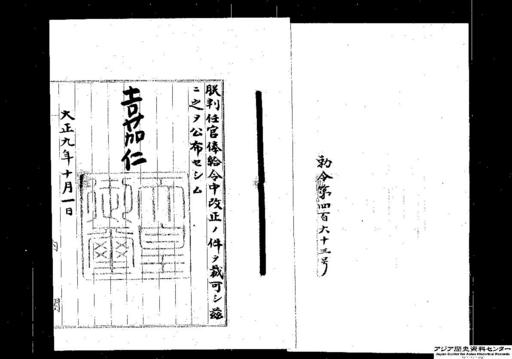 勅令第四百六十三号
朕判任官俸給令中改正ノ件ヲ裁可シ玆
ニ之ヲ公布セシム
嘉仁
大正九年十月一日
内閣
アジア歴史資料センター
Japan Center for Asian Historical Records